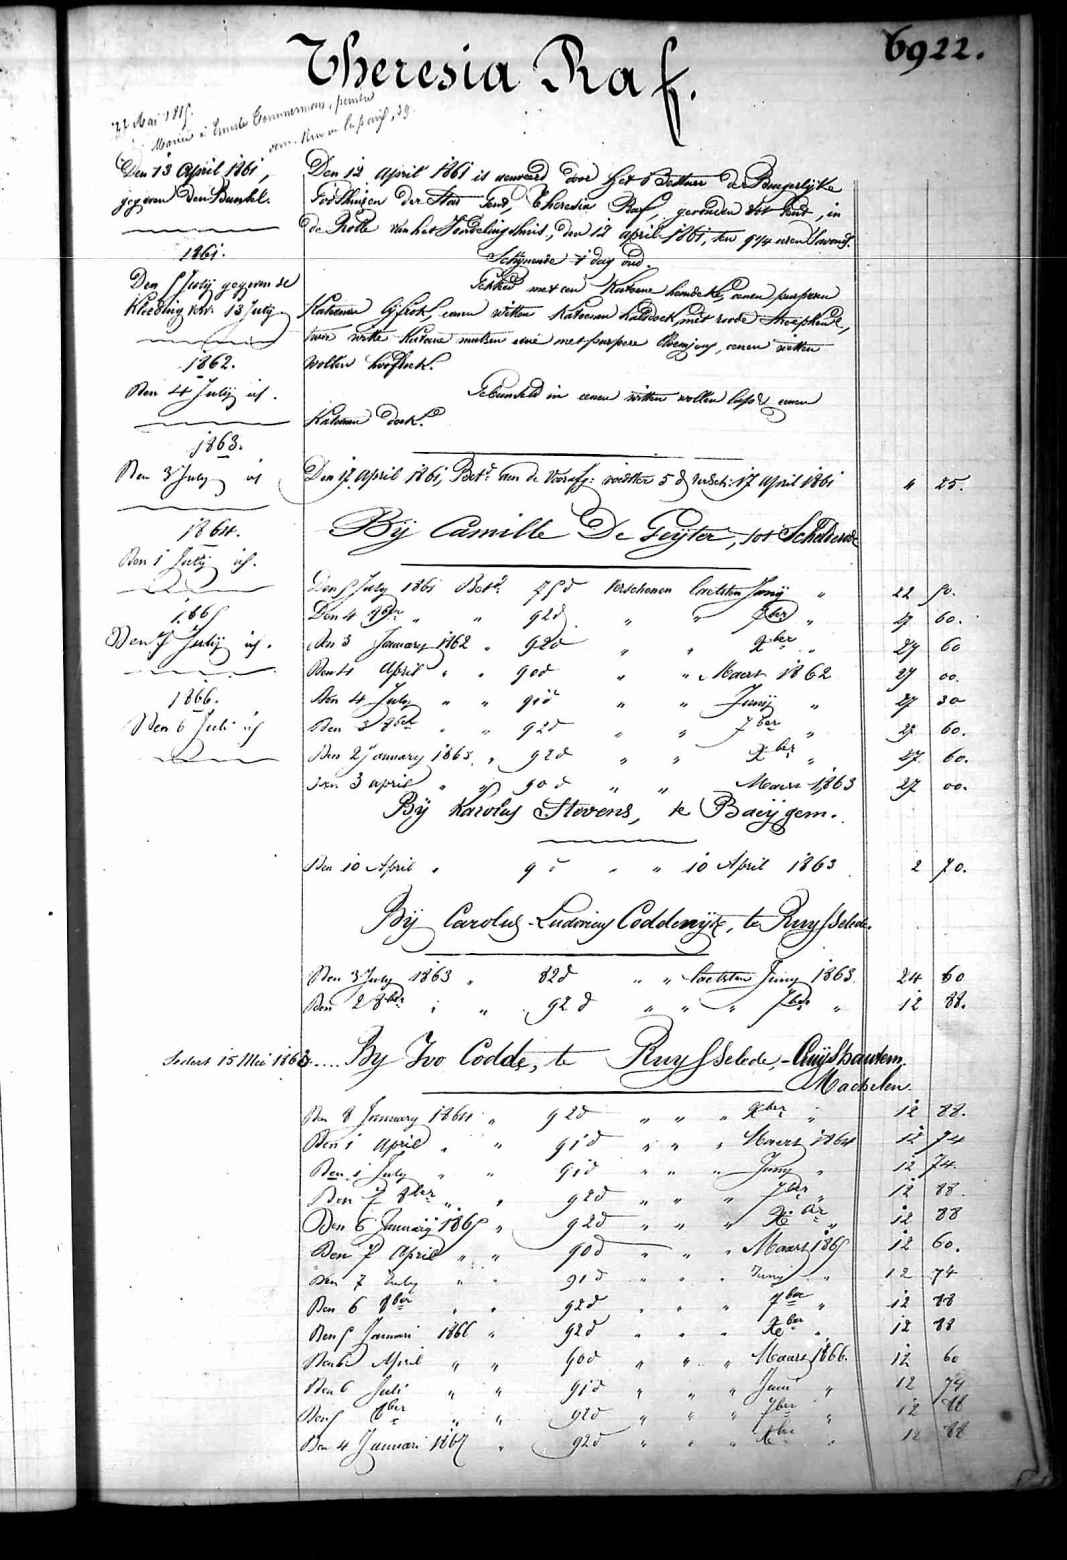 Theresia Raf.
6922.
Mai
Mariée à
Den 13 April 1861,
gegeven den Bundel.
1861.
Den 5 Julij gegeven de
Kleeding
13 July
1862.
Den 4 Julij id.
1863.
Den 3 July id
1864.
Den 1 Julij id.
1865
Den 7 Julij id.
1866.
Den 6 Juli id
Den 12 April 1861 is aanveerd door het Bestuur der Burgerlijke
Godshuizen der Stad Gend, Theresia Raf, gevonden tot Gend, in
de Rolle van het Vondelingshuis, den 12 april 1861, ten 9 1/4 uren 's avonds.
Schijnende 1 dag oud.
Gekleed met een Katoene hemdeke, eenen purperen
Katoenen lijfrok, eenen witten Katoenen halsdoek met roode streepkens,
twee witte Katoene mutsen eene met purpere bloemjens, eenen witten
wollen hoofdoek.
Gebundeld in eenen witten wollen en eenen
Katoenen doek.
Den 17 April 1861, Bet.d aan de voedster 5 d 17 April 1861 " 25.
Bij Camille De Geijter, tot Schelderode
Den 5 July 1861 Bet.d 75 d verschenen laetsten Junij " 22 50.
Den 4 8ber " " 92 d " " 7ber " 27 60.
Den 3 January 1862 " 92 d " " Xber " 27 60
Den 4 April " " 90 d " " Maert 1862 27 00.
Den 4 July " " 91 d " " Junij " 27 30
Den 3 8ber " " 92 d " " 7ber " 27 60.
Den 2 January 1863 " 92 d " " Xber " 27 60.
Den 3 april " " 90 d " " Maert 1863 27 00.
Bij Karolus Stevens, te Baeijgem.
Den 10 April " 9 d " " 10 April 1863 2 70.
Bij Carolus-Ludovicus Coddenijs, te Ruysselede.
Den 3 July 1863 " 82 d " " laetsten Juny 1863. 24 60
Den 2 8ber " " 92 d " " " 7ber " 12 88.
Sedert 15 Mei 1863.... By Ivo Codde, te Ruysselede, - Cruijshautem
Machelen.
Den 8 January 1864 " 92 d " " " Xber " 12 88.
Den 1 April " " 91 d " " " Maert 1864 12 74
Den 1 July " " 91 d " " " Juny " 12 74.
Den 7 8ber " " 92 d " " " 7ber " 12 88.
Den 6 Januarij 1865 " 92 d " " " Xber " 12 88
Den 7 April " " 90 d " " " Maert 1865 12 60.
Den 7 July " " 91 d " " " Junij " 12 74
Den 6 8ber " " 92 d " " " 7ber " 12 88
Den 5 Januari 1866 " 92 d " " " Xber " 12 88
Den 6 April " " 90 d " " " Maart 1866. 12 60
Den 6 Juli " " 91 d " " " Juni " 12 74
Den 5 8ber " " 92 d " " " 7ber " 12 88
Den 4 Januari 1867 " 92 d " " " Xber " 12 88